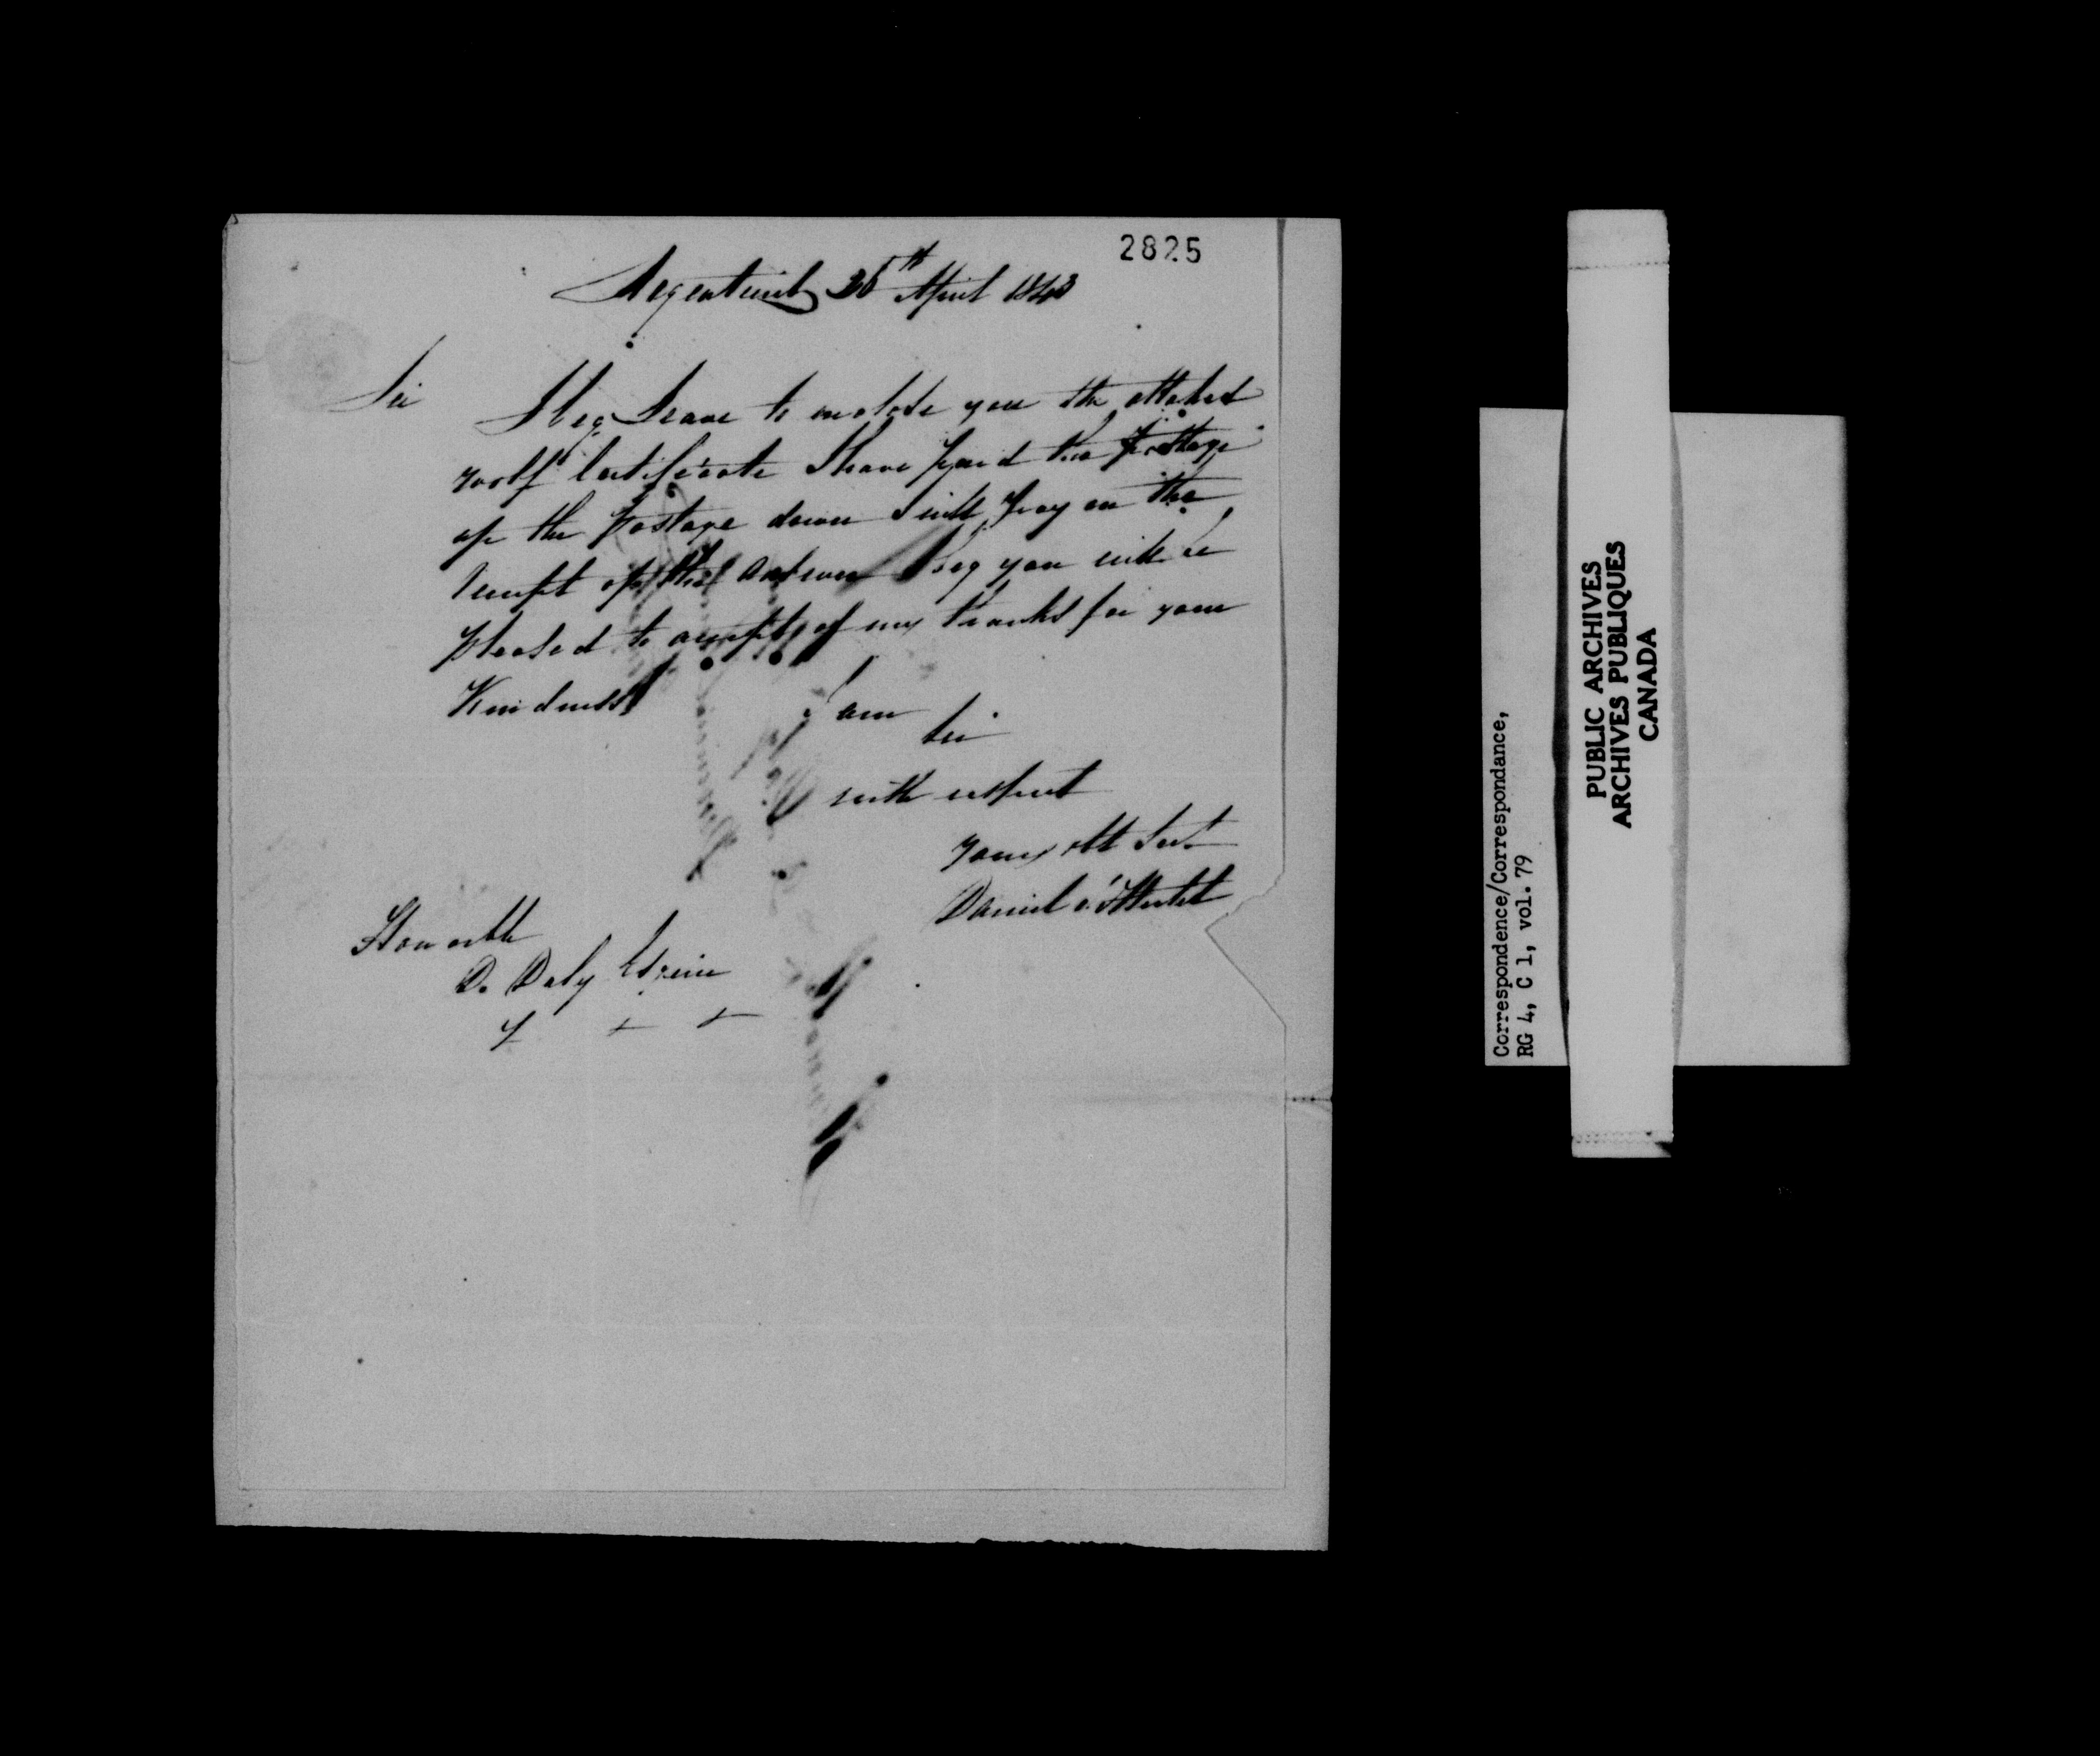 2825
Argenteuil 26th April 1843
Sir
I beg Leave to inclose you the attached
Certificate I have paid the postage
up the postage down I will pay on the
receipt of the answer I beg you will be
pleased to accept of my thanks for your
Kindness
I am
Sir
with respect
Yours obt Sert
Daniel
Honorable
D. Daly Esquire
Correspondence/Correspondance,
RG 4, C 1, vol. 79
PUBLIC ARCHIVES
ARCHIVES PUBLIQUES
CANADA